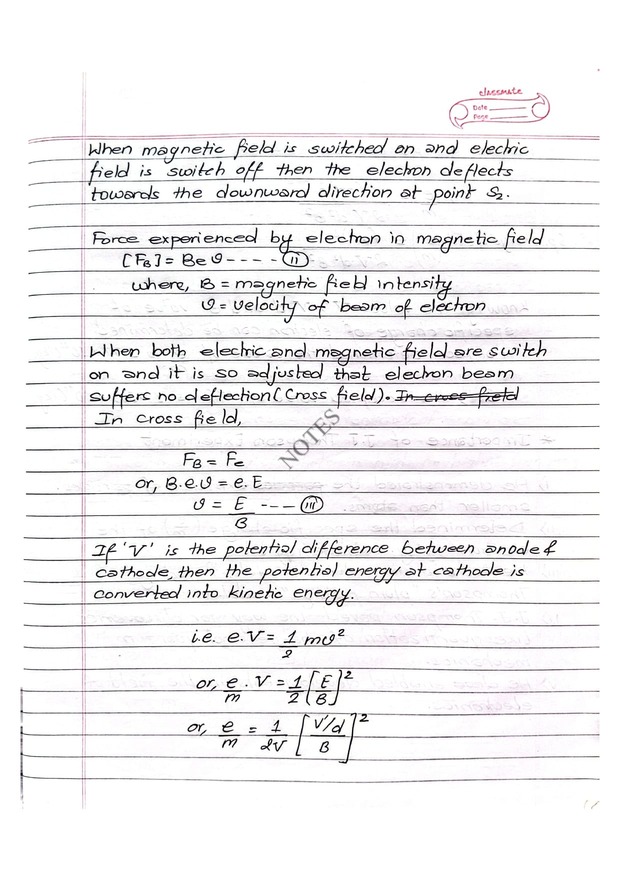 classmate
Date
Page
When magnetic field is switched on and electric
field is switch off then the electron deflects
towards the downward direction at point S₂.
Force experienced by electron in magnetic field
[F_B] = Beϑ - - - - (ii)
where, B = magnetic field intensity
ϑ = velocity of beam of electron
When both electric and magnetic field are switch
on and it is so adjusted that electron beam
suffers no deflection (Cross field). In cross field
In cross field,
F_B = F_e
or, B.e.ϑ = e.E
ϑ = E/B - - - (iii)
If 'V' is the potential difference between anode &
cathode, then the potential energy at cathode is
converted into kinetic energy.
i.e. e.V = 1/2 mϑ²
or, e/m . V = 1/2 [E/B]²
or, e/m = 1/2V [V'/d / B]²
NOTES